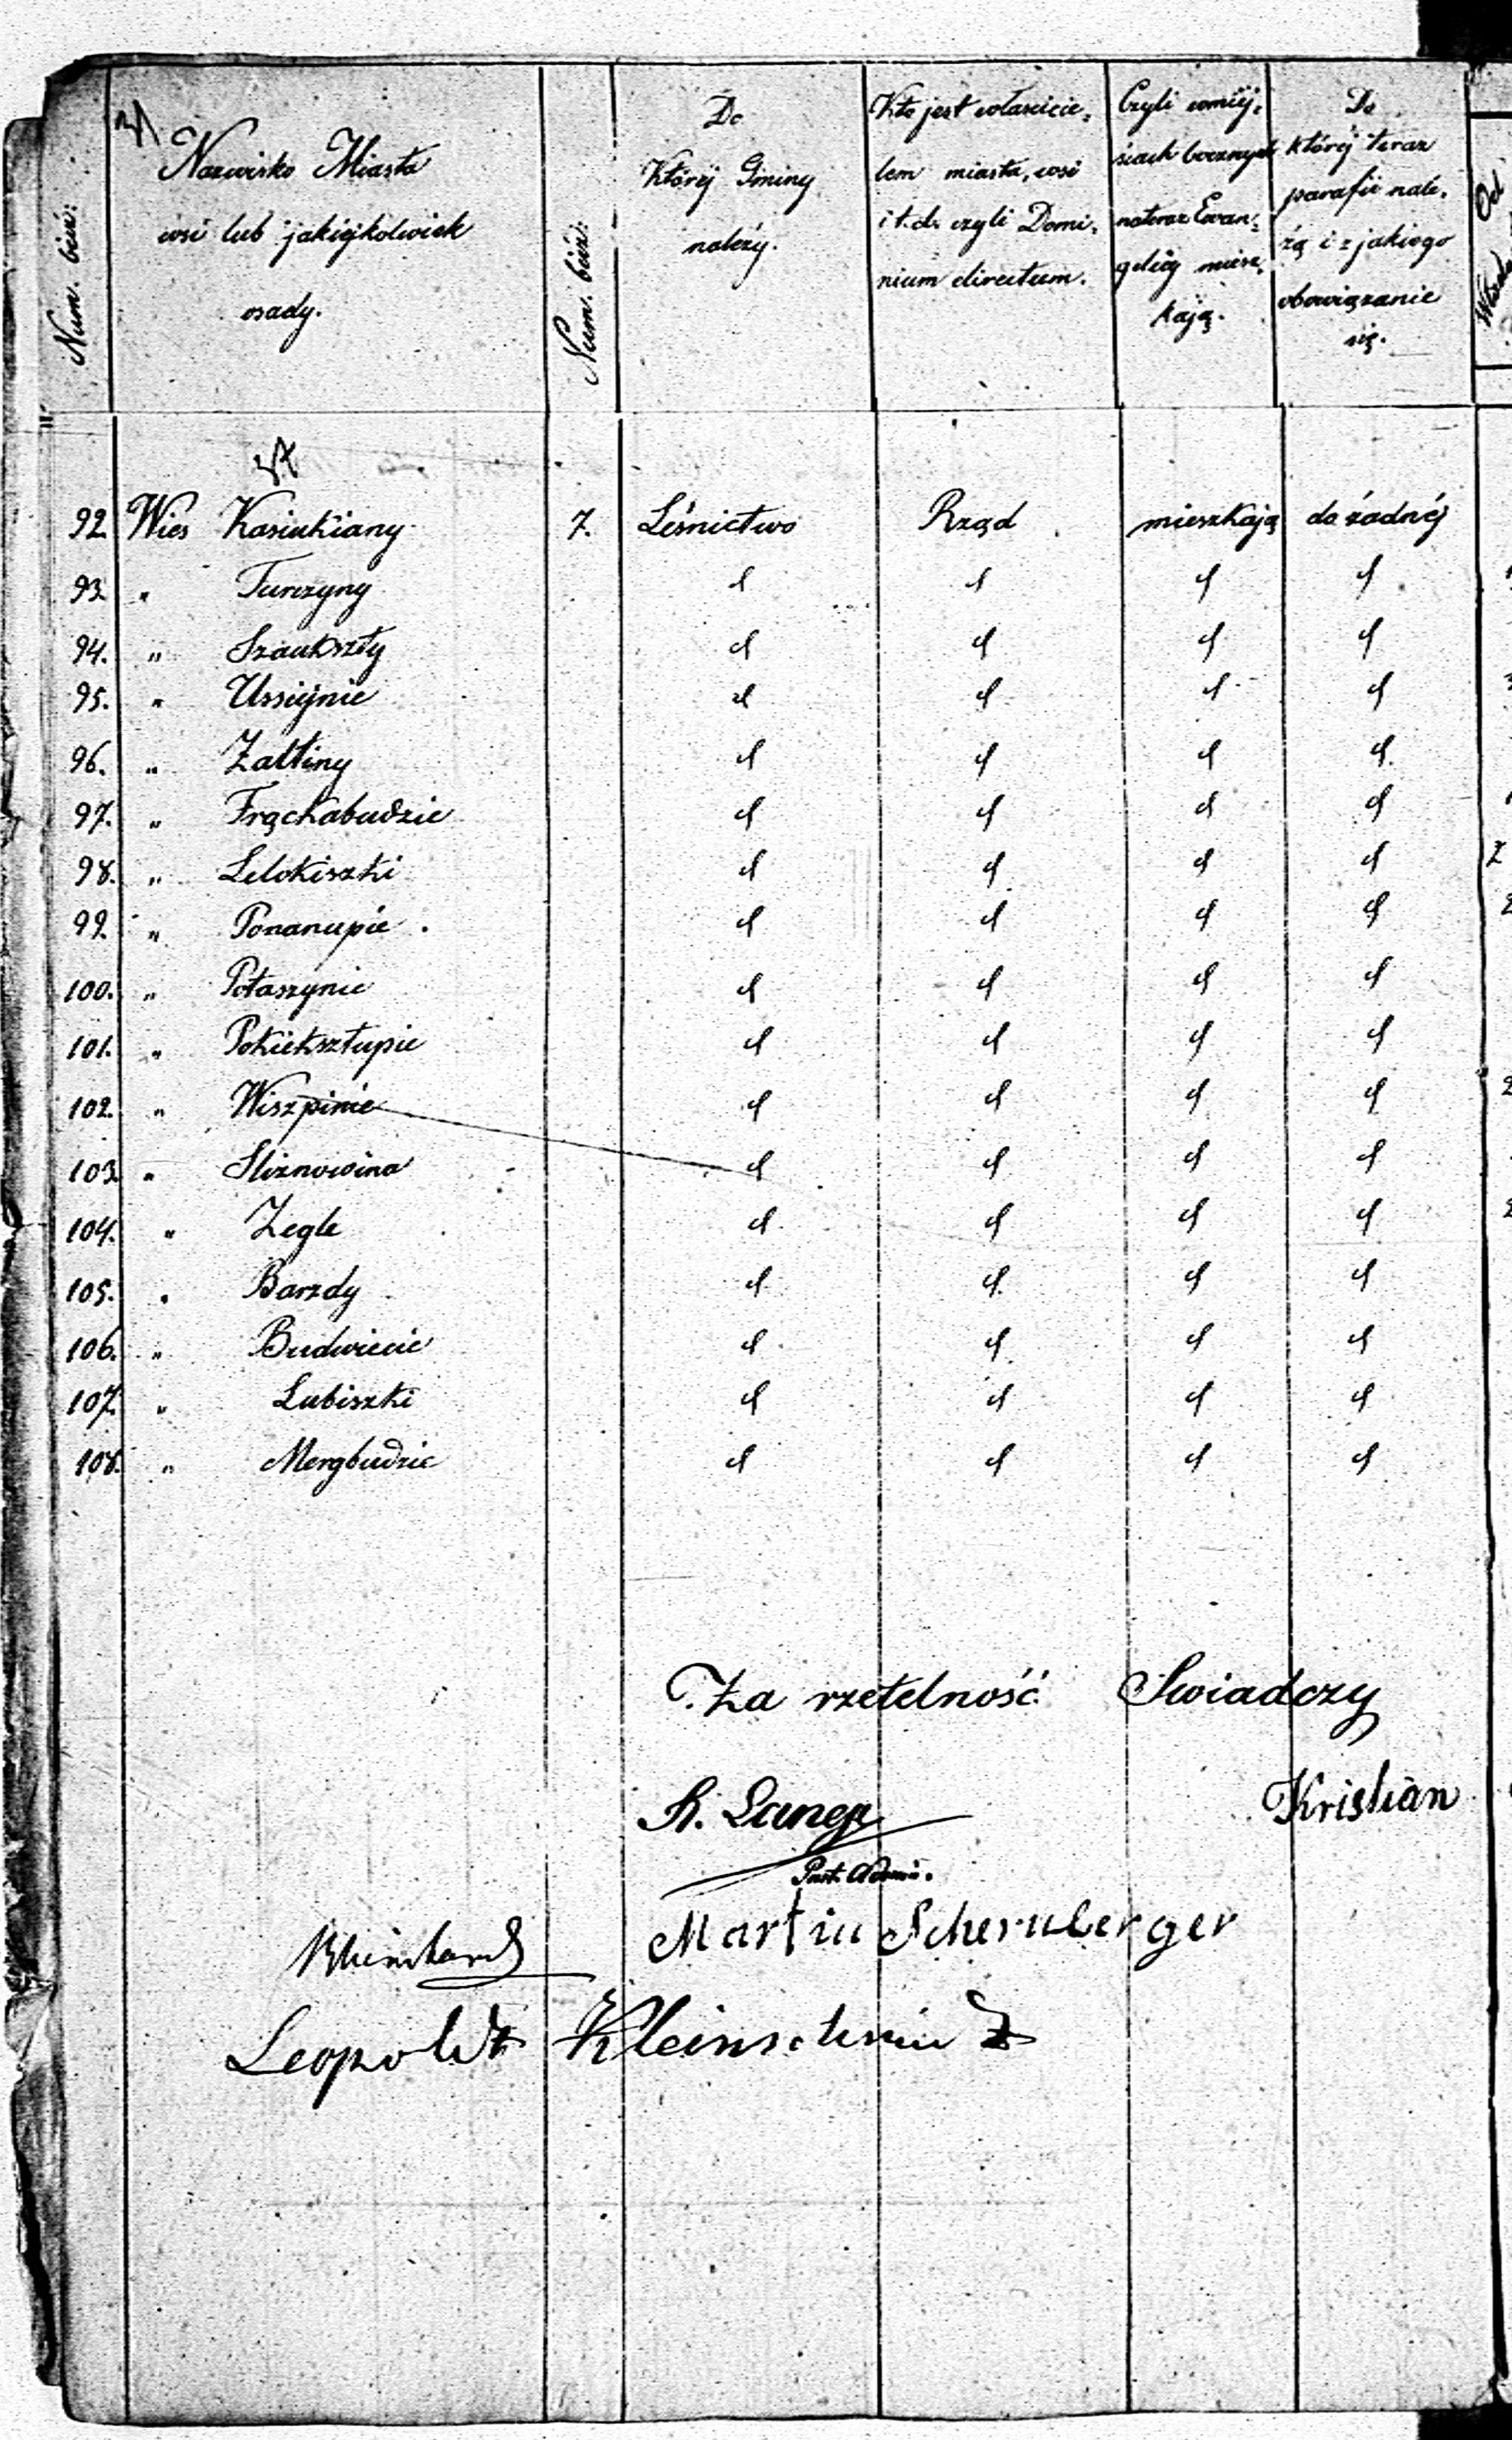 Num. bież:
Nazwisko Miasta
wsi lub jakiejkolwiek
osady.
Num. bież:
Do
Któréj Gminy
należy.
Kto jest właścicie=
lem miasta, wsi
i t. d. czyli Domi=
nium directum.
Czyli w miej=
scach bocznych
nateraz Ewan=
gelicy miesz
kają.
Do
któréj teraz
parafii nale=
żą i z jakiego
obowiązanie
się.
92. Wies Kasiukiany 7. Leśnictwo Rząd mieszkają do żadnéj
93. " Turczyny d d d d
94. " Szaukszty d d d d
95. " Ussiejnie d d d d
96. " Zaltiny d d d d
97. " Frąckabudzie d d d d
98. " Lelokiszki d d d d
99. " Ponanupie d d d d
100. " Potaszynie d d d d
101. " Pokieksztupie d d d d
102. " Wiszpinie d d d d
103. " Sliznowina d d d d
104. " Zegle d d d d
105. " Barzdy d d d d
106. " Budwiecie d d d d
107. " Lubiszki d d d d
108. " Mergbudzie d d d d
Za rzetelność Swiadczy
Kristian
Past. Admi.
Martin Schernberger
Leopoldt Kleinschmidt